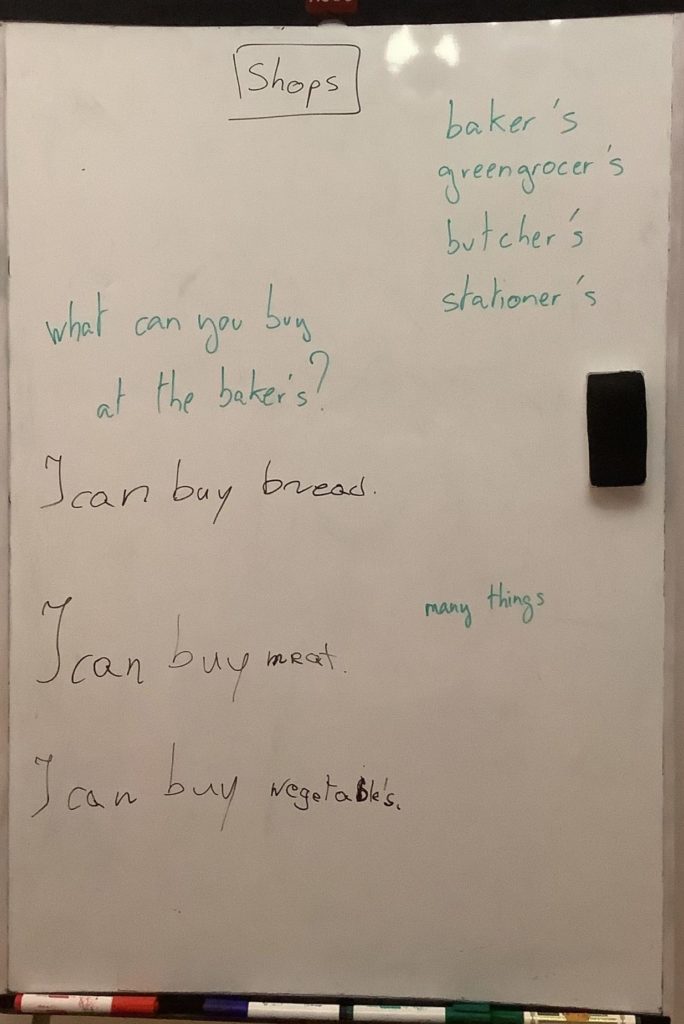 Shops
baker's
greengrocer's
butcher's
stationer's
what can you buy
at the baker's?
I can buy bread.
many things
I can buy meat.
I can buy vegetable's.